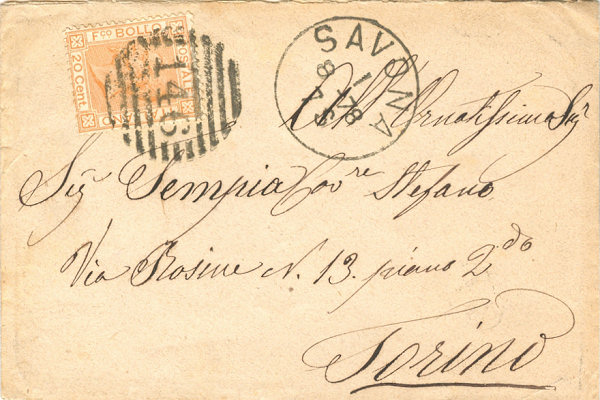 F.CO BOLLO
POSTALE
20 Cent.
SAVONA
All'Ornatissimo Sig
Sig Sempia Cavre Stefano
Via Rosine N. 13. piano 2do
Torino